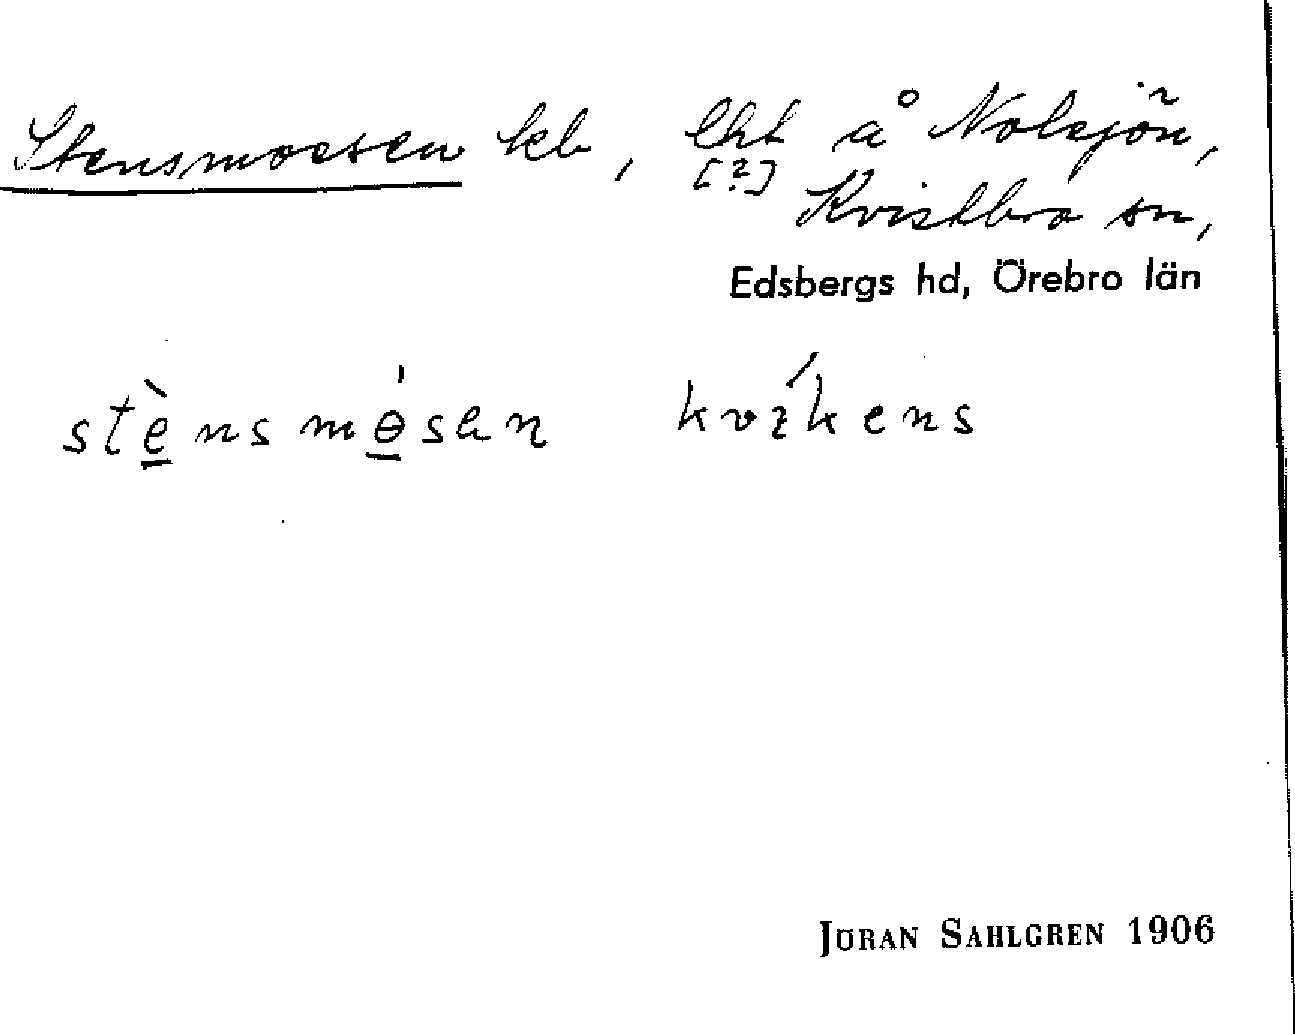 Stensmossen kb, lht å Nolsjön,
[?]
Kvistbro sn,
Edsbergs hd, Örebro län
stè̱nsmө̱́sɘn kvíkens
JÖRAN SAHLGREN 1906